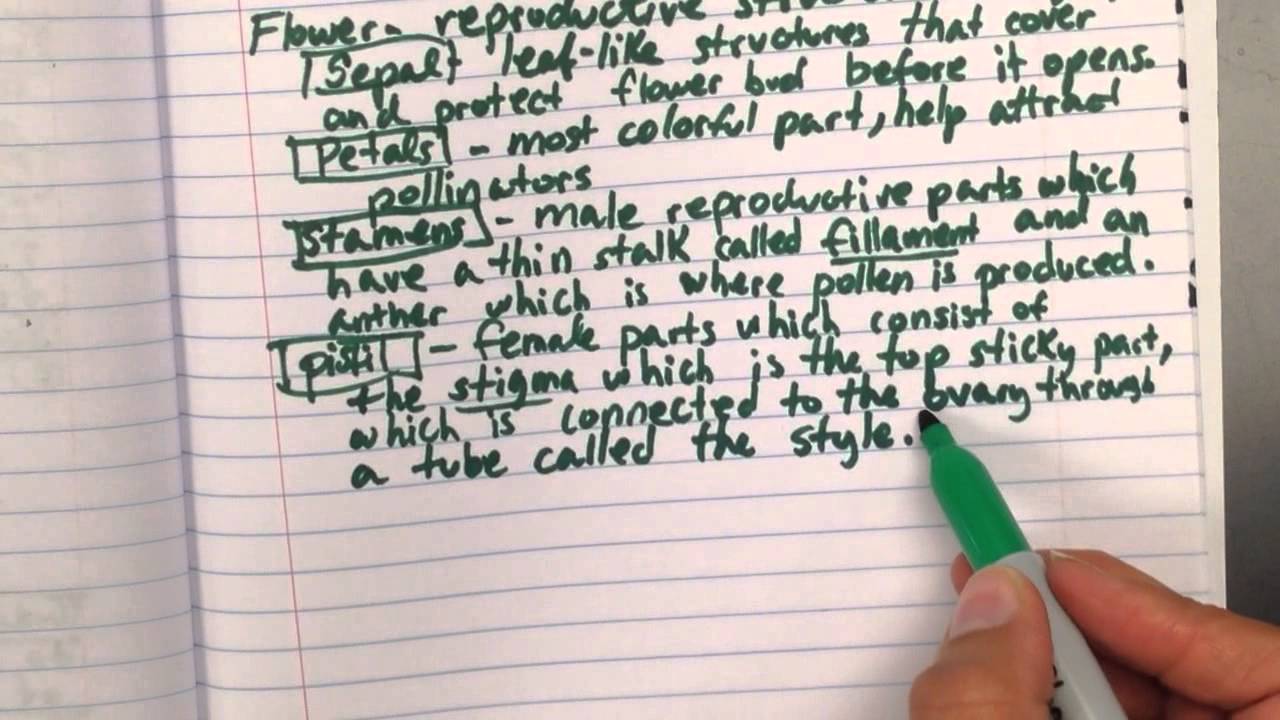 Flower- reproductive
Sepal- leaf-like structures that cover
and protect flower bud before it opens.
Petals - most colorful part, help attract
pollinators
stamens - male reproductive parts which
have a thin stalk called fillament and an
anther which is where pollen is produced.
pistil - female parts which consist of
the stigma which is the top sticky part,
which is connected to the ovary through
a tube called the style.